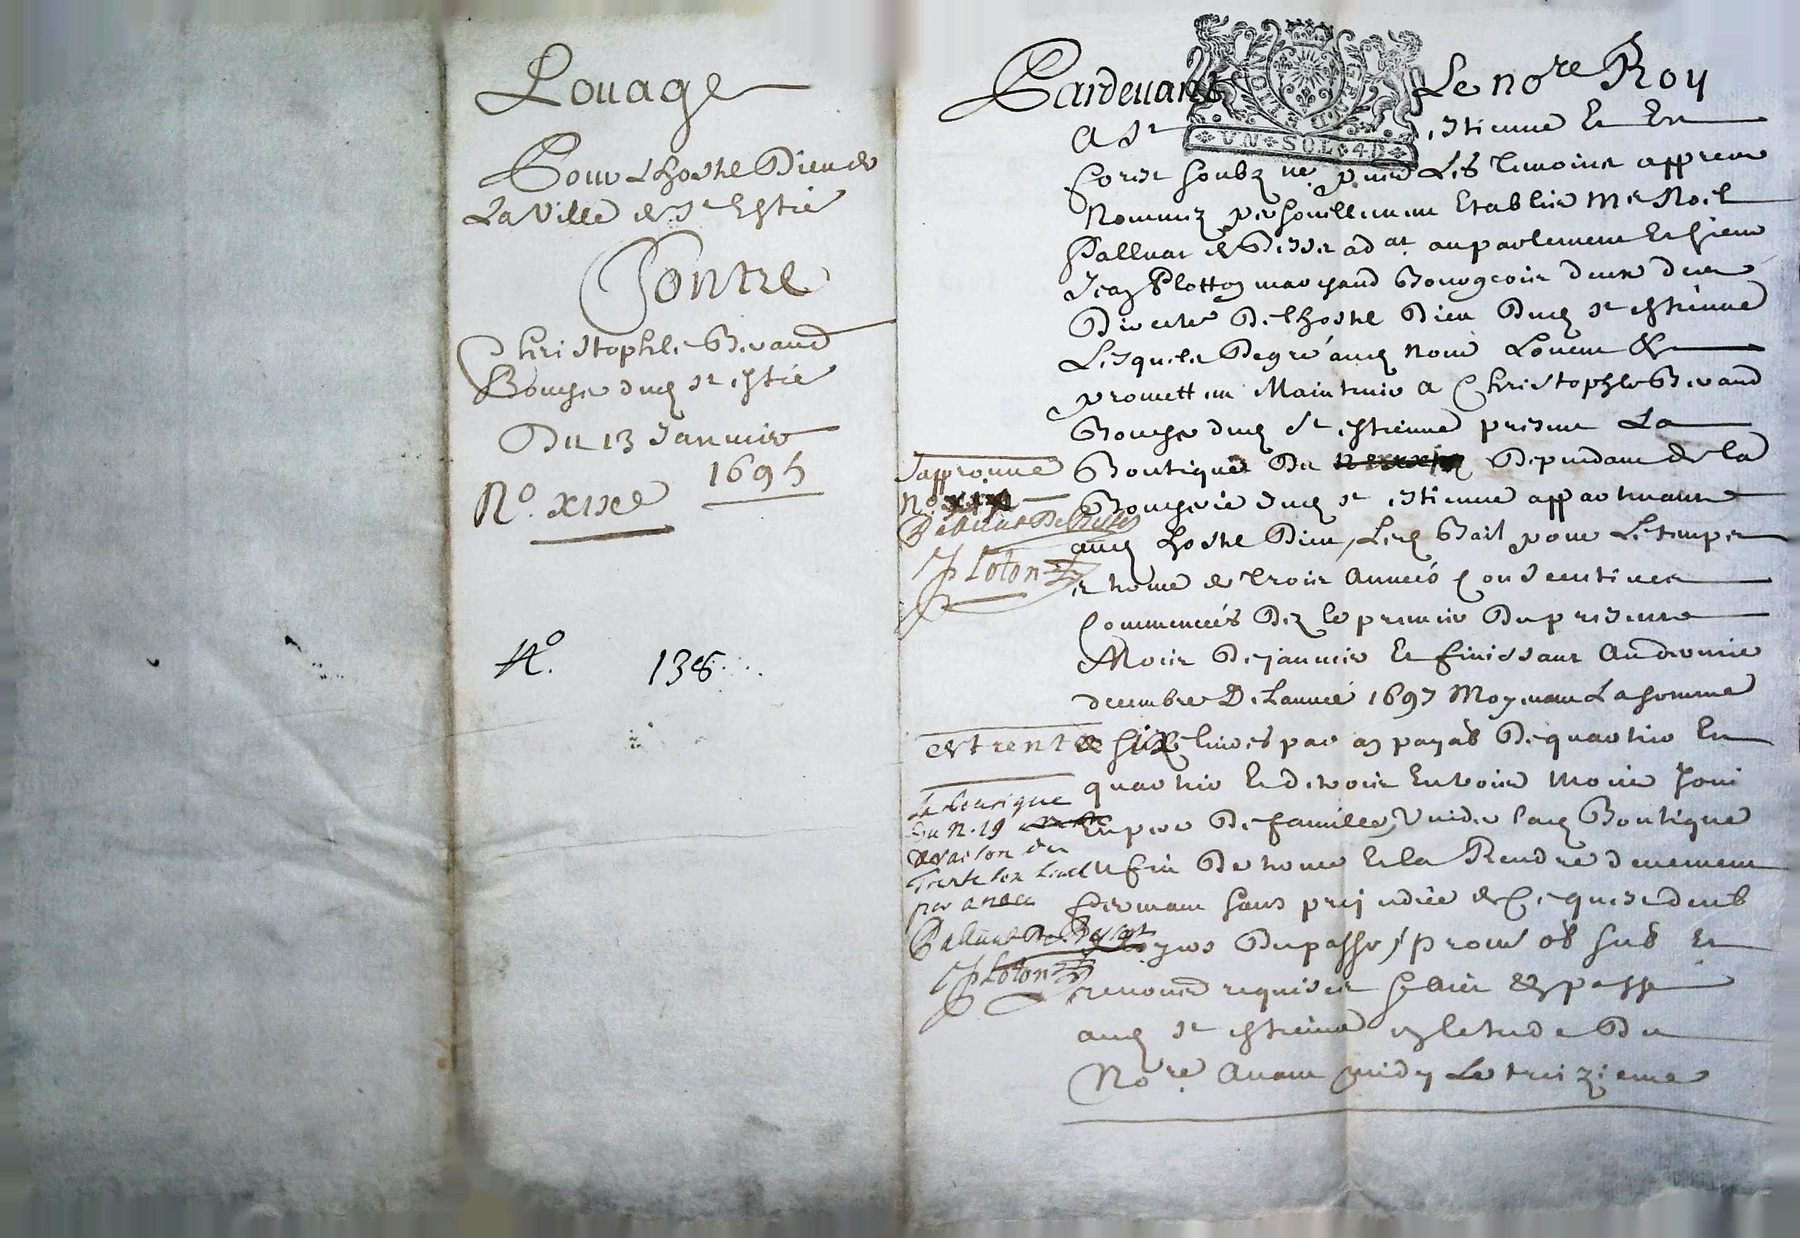 Louage
Pour Lhostel Dieu de
La Ville de St Estie
Contre
Christophle Beraud
Boucher dud St estie
Du 13 Januier
1695
No. xixe
No. 138
Pardeuant Le nore Roy
a St estienne Et En
forest soubzne puis Les temoins appres
Nommez personellement Establis Me Noel
Palluat de Besset adat au parlement Et sieur
Jean Plotton marchand Bourgeois deux des
Directrs De lhostel Dieu Dud St estienne
Lesquels De gré aud Nom Louent &
promettent Maintenir a Christophle Beraud
Boucher dud St estienne present La
Boutique Du Dependant de la
Boucherie dud St estienne appartenante
aud hostel Dieu, Led Bail pour Le temps
et terme de trois Années Consecutives
Commencées Dez le premier Du present
Mois De januier Et finissant Au dernier
decembre De Lannée 1697 Moyenant La somme
de trente six liures par an payab De quartier En
quartier Et d'auoir En bon Moeur joui
En pere De famille, Vuider lad Boutique
a fin De terme Et la Rendre deuement
fermant sans prejudice de Ce quest deub
Du passé, prom ob sub Et
renond requises fait & passé
aud St estienne estude Du
Nore Auant midy Le treizieme
J'approuue
No.
Palluat De Besset
JPloton
La boutique
Du N. 19
par anee
Palluat De Besset
JPloton
VN SOL 4D